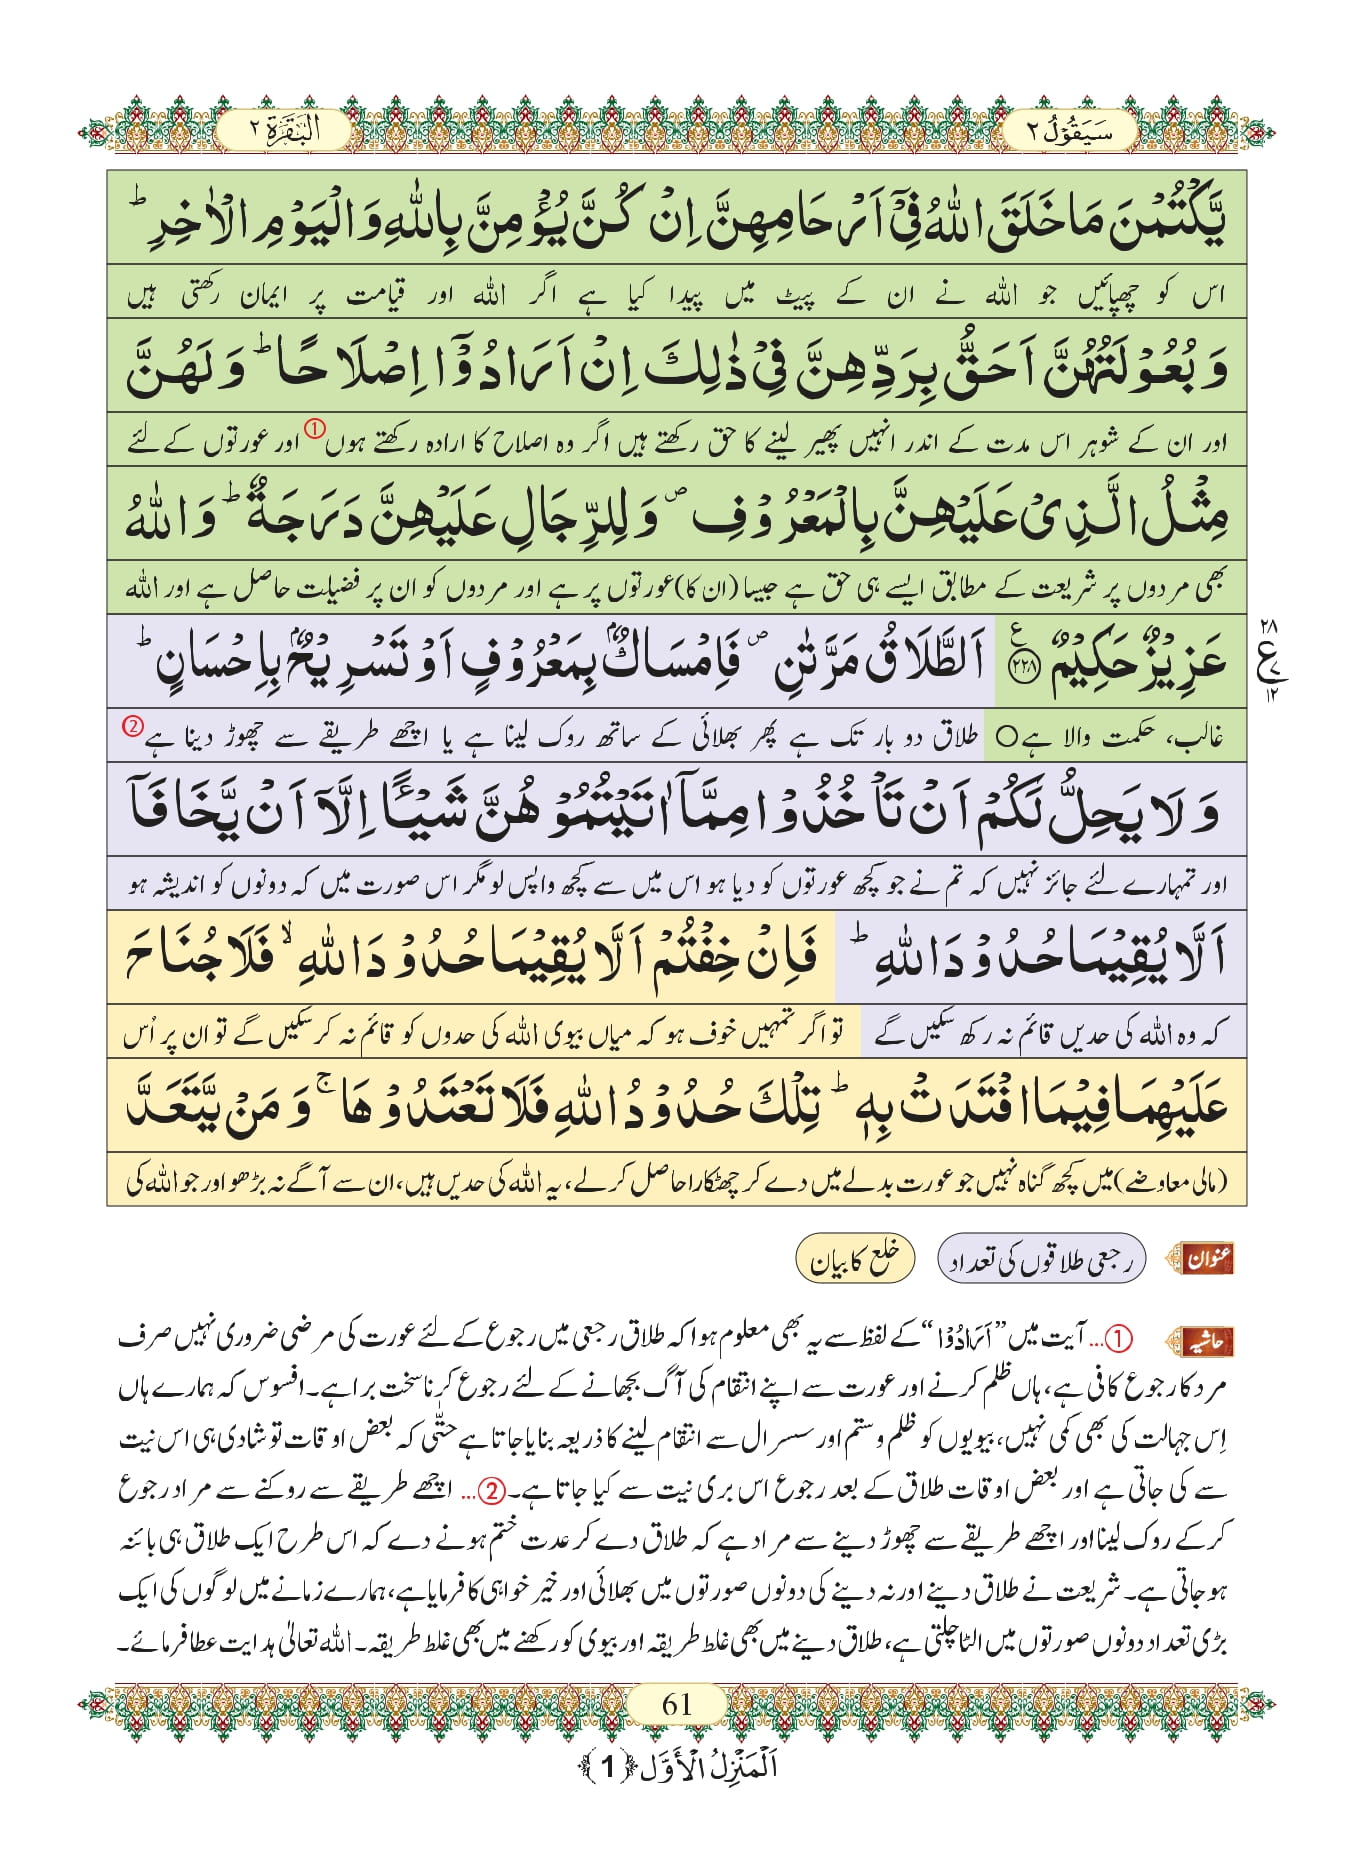 سَيَقُوْلُ ٢
اَلْبَقَرَة ٢
يَّكْتُمْنَ مَا خَلَقَ اللّٰهُ فِیْۤ اَرْحَامِهِنَّ اِنْ كُنَّ یُؤْمِنَّ بِاللّٰهِ وَ الْیَوْمِ الْاٰخِرِؕ
اس کو چھپائیں جو اللہ نے ان کے پیٹ میں پیدا کیا ہے اگر اللہ اور قیامت پر ایمان رکھتی ہیں
وَ بُعُوْلَتُهُنَّ اَحَقُّ بِرَدِّهِنَّ فِیْ ذٰلِكَ اِنْ اَرَادُوْۤا اِصْلَاحًاؕ وَ لَهُنَّ
اور ان کے شوہر اس مدت کے اندر انہیں پھیر لینے کا حق رکھتے ہیں اگر وہ اصلاح کا ارادہ رکھتے ہوں① اور عورتوں کے لئے
مِثْلُ الَّذِیْ عَلَیْهِنَّ بِالْمَعْرُوْفِ۪ وَ لِلرِّجَالِ عَلَیْهِنَّ دَرَجَةٌؕ وَ اللّٰهُ
بھی مردوں پر شریعت کے مطابق ایسے ہی حق ہے جیسا (ان کا) عورتوں پر ہے اور مردوں کو ان پر فضیلت حاصل ہے اور اللہ
عَزِیْزٌ حَكِیْمٌ۠ ﴿٢٢٨﴾ اَلطَّلَاقُ مَرَّتٰنِ۪ فَاِمْسَاكٌۢ بِمَعْرُوْفٍ اَوْ تَسْرِیْحٌۢ بِاِحْسَانٍؕ
٢٨
ع
١٢
غالب، حکمت والا ہے○ طلاق دو بار تک ہے پھر بھلائی کے ساتھ روک لینا ہے یا اچھے طریقے سے چھوڑ دینا ہے②
وَ لَا یَحِلُّ لَكُمْ اَنْ تَاْخُذُوْا مِمَّاۤ اٰتَیْتُمُوْهُنَّ شَیْــٴًـا اِلَّاۤ اَنْ یَّخَافَاۤ
اور تمہارے لئے جائز نہیں کہ تم نے جو کچھ عورتوں کو دیا ہو اس میں سے کچھ واپس لو مگر اس صورت میں کہ دونوں کو اندیشہ ہو
اَلَّا یُقِیْمَا حُدُوْدَ اللّٰهِؕ فَاِنْ خِفْتُمْ اَلَّا یُقِیْمَا حُدُوْدَ اللّٰهِۙ فَلَا جُنَاحَ
کہ وہ اللہ کی حدیں قائم نہ رکھ سکیں گے تو اگر تمہیں خوف ہو کہ میاں بیوی اللہ کی حدوں کو قائم نہ کر سکیں گے تو ان پر اُس
عَلَیْهِمَا فِیْمَا افْتَدَتْ بِهٖؕ تِلْكَ حُدُوْدُ اللّٰهِ فَلَا تَعْتَدُوْهَاۚ وَ مَنْ یَّتَعَدَّ
(مالی معاوضے) میں کچھ گناہ نہیں جو عورت بدلے میں دے کر چھٹکارا حاصل کر لے، یہ اللہ کی حدیں ہیں، ان سے آگے نہ بڑھو اور جو اللہ کی
عنوان رجعی طلاقوں کی تعداد خلع کا بیان
حاشیہ ①... آیت میں ”اَرَادُوْۤا“ کے لفظ سے یہ بھی معلوم ہوا کہ طلاق رجعی میں رجوع کے لئے عورت کی مرضی ضروری نہیں صرف
مرد کا رجوع کافی ہے، ہاں ظلم کرنے اور عورت سے اپنے انتقام کی آگ بجھانے کے لئے رجوع کرنا سخت برا ہے۔ افسوس کہ ہمارے ہاں
اِس جہالت کی بھی کمی نہیں، بیویوں کو ظلم و ستم اور سسرال سے انتقام لینے کا ذریعہ بنایا جاتا ہے حتّٰی کہ بعض اوقات تو شادی ہی اس نیت
سے کی جاتی ہے اور بعض اوقات طلاق کے بعد رجوع اس بری نیت سے کیا جاتا ہے۔ ②... اچھے طریقے سے روکنے سے مراد رجوع
کر کے روک لینا اور اچھے طریقے سے چھوڑ دینے سے مراد ہے کہ طلاق دے کر عدت ختم ہونے دے کہ اس طرح ایک طلاق ہی بائنہ
ہو جاتی ہے۔ شریعت نے طلاق دینے اور نہ دینے کی دونوں صورتوں میں بھلائی اور خیر خواہی کا فرمایا ہے، ہمارے زمانے میں لوگوں کی ایک
بڑی تعداد دونوں صورتوں میں الٹا چلتی ہے، طلاق دینے میں بھی غلط طریقہ اور بیوی کو رکھنے میں بھی غلط طریقہ۔ اللہ تعالیٰ ہدایت عطا فرمائے۔
61
اَلْمَنْزِلُ الْاَوَّل ﴿1﴾